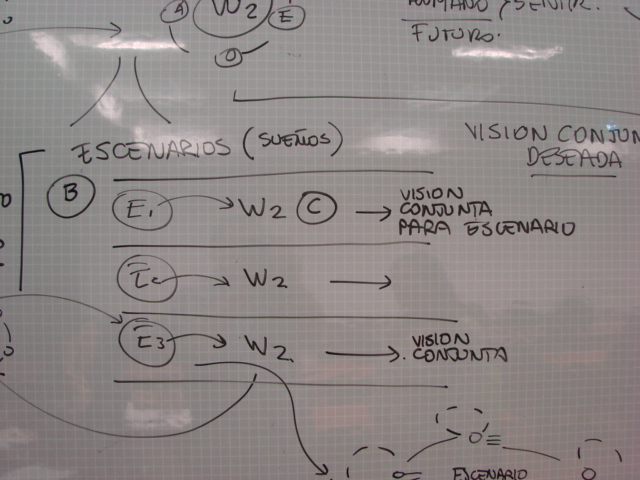 A W2 E
O
SENTIR.
FUTURO.
ESCENARIOS (SUEÑOS)
VISION CONJUN
DESEADA
B
E1 W2 C VISION
CONJUNTA
PARA ESCENARIO
E2 W2
E3 W2 VISION
CONJUNTA
ESCENARIO